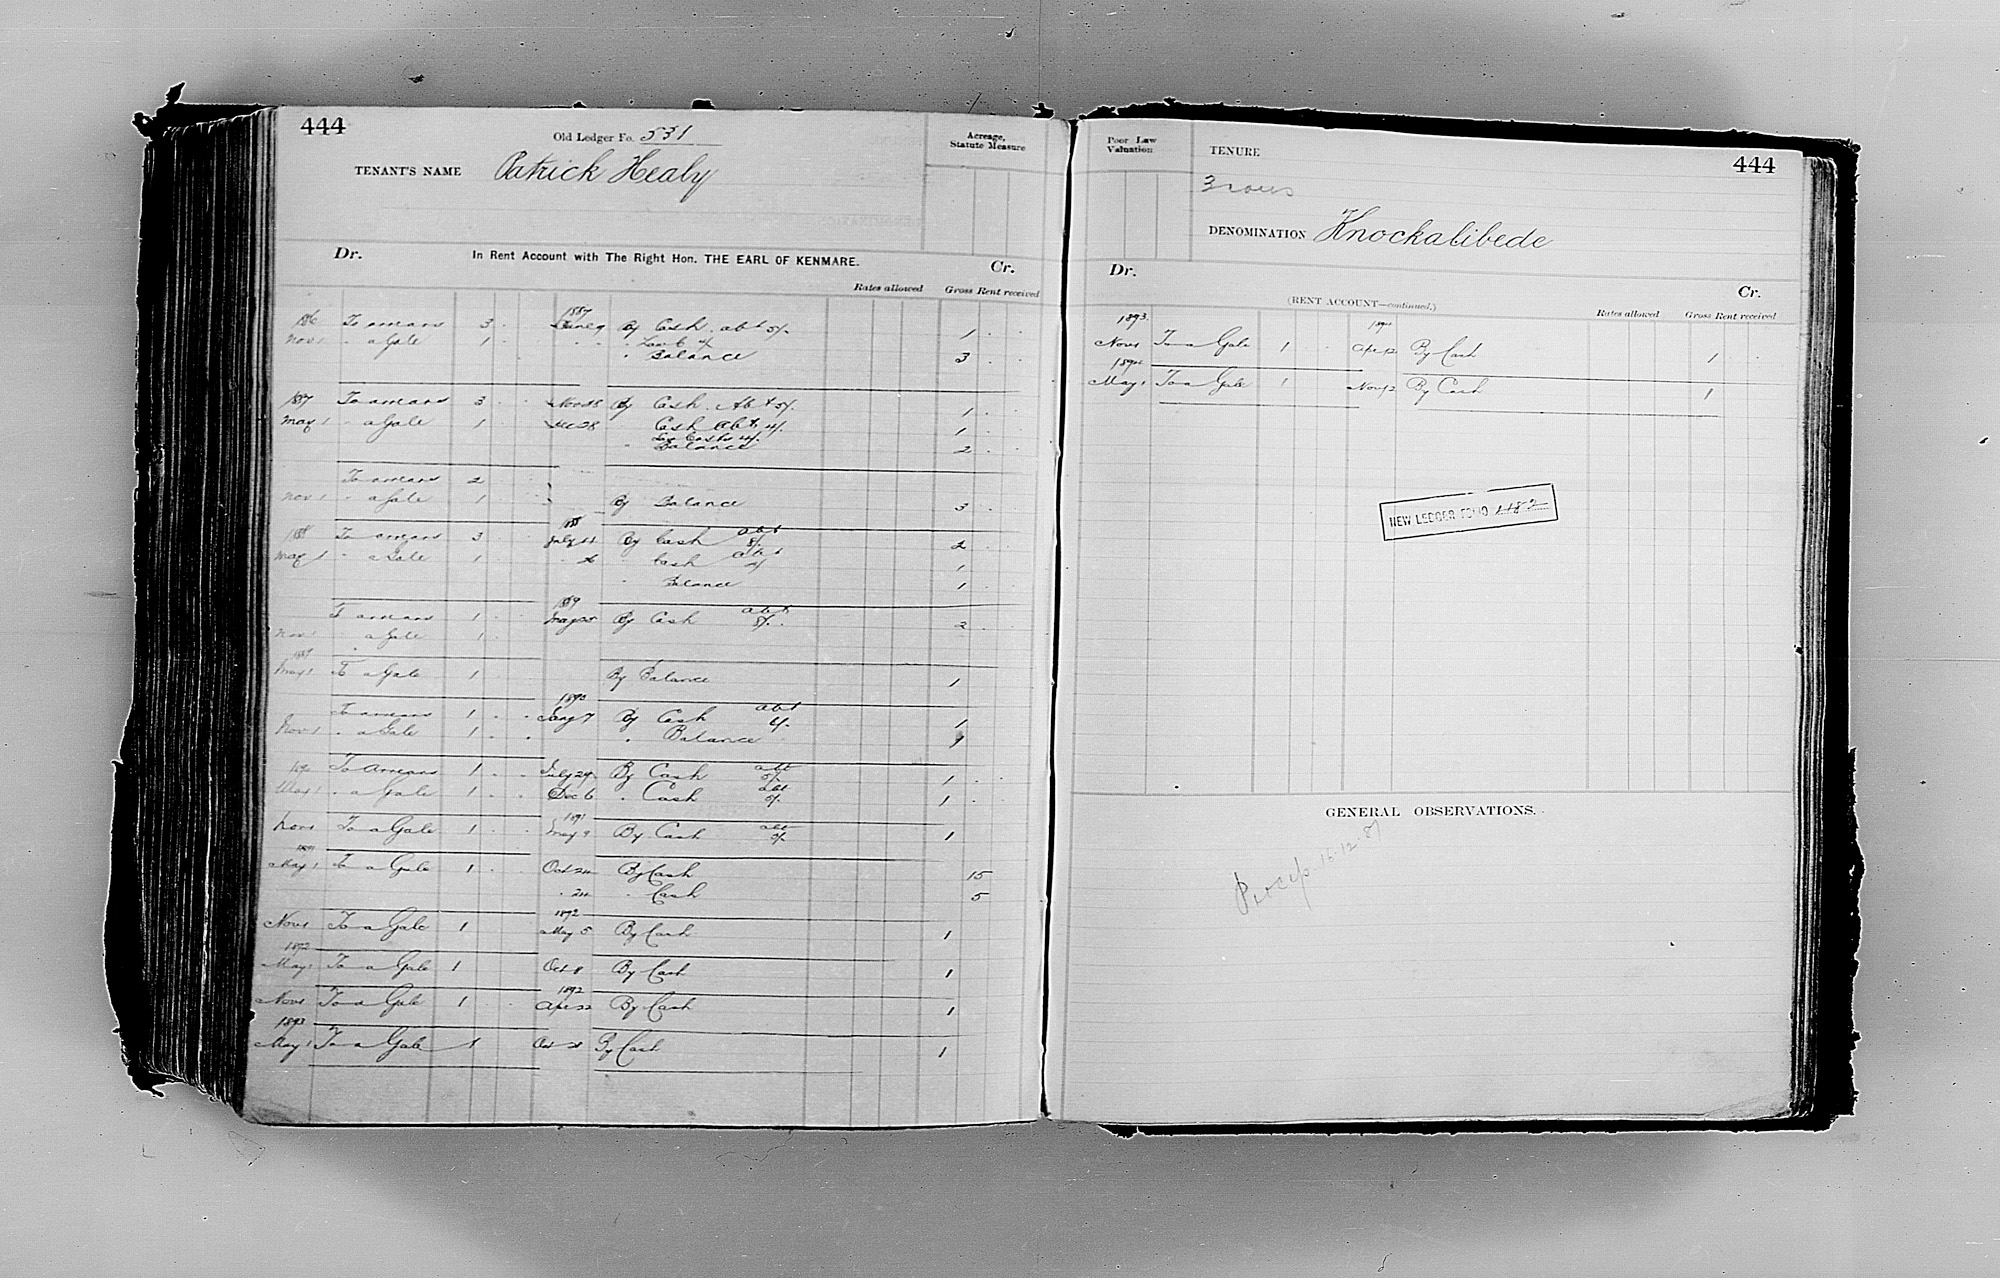 444
Old Ledger Fo. 531
TENANT'S NAME Patrick Healy
Acreage,
Statute Measure
Dr. In Rent Account with The Right Hon. THE EARL OF KENMARE. Cr.
Rates allowed Gross Rent received
1887
1886 To arrears 3 June 9 By Cash abt 5/. 1
Nov 1 " a Gale 1
" Balance 3
1887 To arrears 3 Nov 28 By Cash Abt 5/. 1
May 1 " a Gale 1 Dec 28 Cash Abt 4/. 1
" Balance 2
To arrears 2
Nov 1 " a Gale 1 By Balance 3
188
1888 To arrears 3 July 11 By Cash abt 2
May 1 " a Gale 1 " Cash abt 1
" Balance 1
1889
To arrears 1 May 25 By Cash abt 8/. 2
Nov 1 " a Gale 1
1889
May 1 To a Gale 1 By Balance 1
1890
To arrears 1 Jany 7 By Cash abt 4/. 1
Nov 1 " a Gale 1 " Balance 1
1890 To Arrears 1 July 29 By Cash abt 5/. 1
May 1 " a Gale 1 Dec 6 " Cash abt 1
1891
Nov 1 To a Gale 1 May 9 By Cash abt 1
1891
May 1 To a Gale 1 Oct 24 By Cash 15
" 24 " Cash 5
1892
Nov 1 To a Gale 1 May 5 By Cash 1
1892
May 1 To a Gale 1 Oct 8 By Cash 1
1892
Nov 1 To a Gale 1 Apr 22 By Cash 1
1893
May 1 To a Gale 1 Oct 28 By Cash 1
Poor Law
Valuation
TENURE
444
DENOMINATION Knockalibede
Dr. Cr.
(RENT ACCOUNT—continued.)
Rates allowed Gross Rent received
1893. 1894
Nov 1 To a Gale 1 Apr 12 By Cash 1
1894
May 1 To a Gale 1 Nov 12 By Cash 1
NEW LEDGER FOLIO 1182
GENERAL OBSERVATIONS.
16.12.87